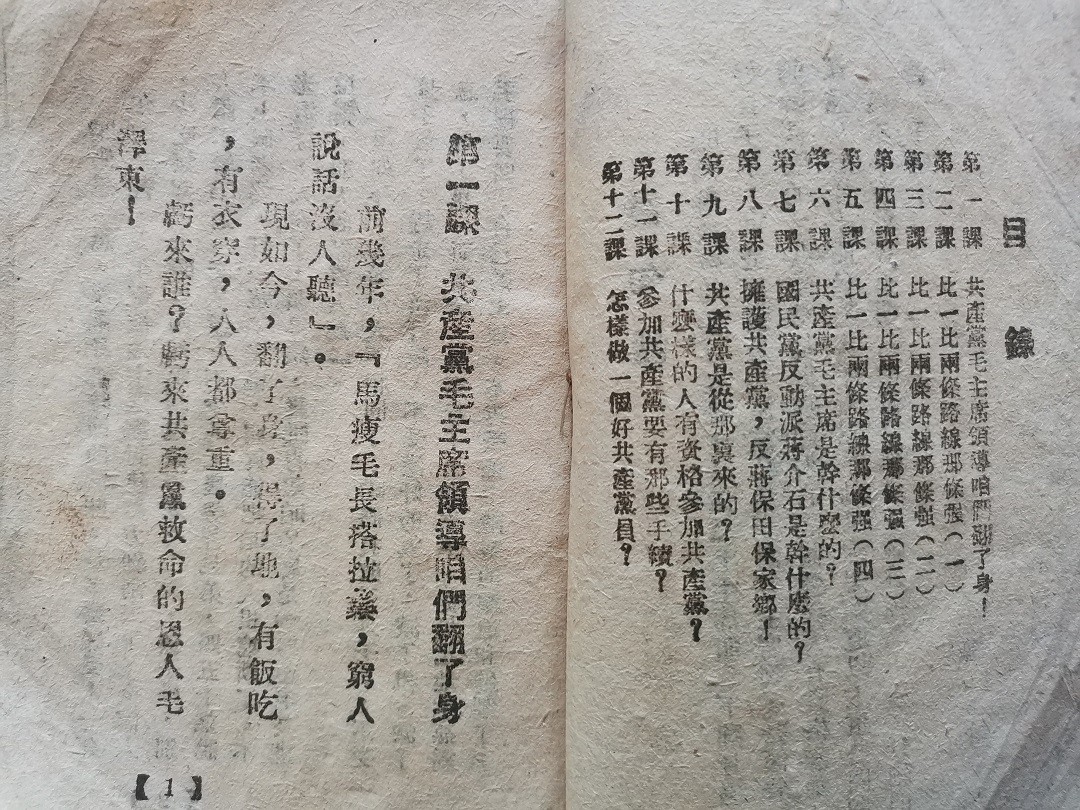 目錄
第一課 共產黨毛主席領導咱們翻了身！
第二課 比一比兩條路線那條强（一）
第三課 比一比兩條路線那條强（二）
第四課 比一比兩條路線那條强（三）
第五課 比一比兩條路線那條强（四）
第六課 共產黨毛主席是幹什麼的？
第七課 國民黨反動派蔣介石是幹什麽的？
第八課 擁護共產黨，反蔣保田保家鄉！
第九課 共產黨是從那裏來的？
第十課 什麽樣的人有資格參加共產黨？
第十一課 參加共產黨要有那些手續？
第十二課 怎樣做一個好共產黨員？
第一課 共產黨毛主席領導咱們翻了身
前幾年，「馬瘦毛長搭拉鬃，窮人
說話沒人聽」。
現如今，翻了身，得了地，有飯吃
，有衣穿，人人都尊重。
虧來誰？虧來共產黨救命的恩人毛
澤東！
【1】